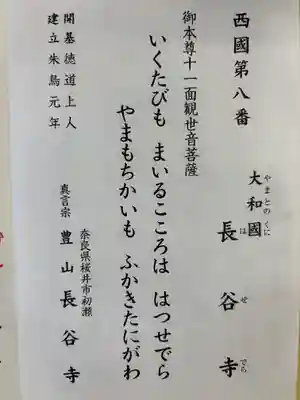 西國第八番
大和國 長谷寺
やまとのくに は せ でら
御本尊十一面観世音菩薩
いくたびも まいるこころは はつせでら
やまもちかいも ふかきたにがわ
奈良県桜井市初瀬
真言宗 豊山長谷寺
開基徳道上人
建立朱鳥元年